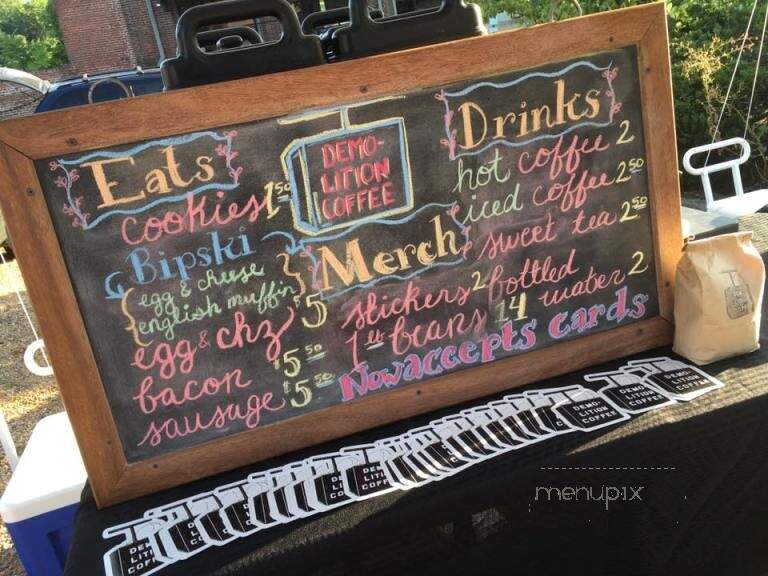 Eats
cookies 1.50
Bipski
egg & cheese
english muffin
egg & chz $5
bacon $5.50
sausage $5.50
DEMO-
LITION
COFFEE
Merch
stickers 2
1 lb beans 14
Drinks
hot coffee 2
iced coffee 2.50
sweet tea 2.50
bottled
water 2
Now accepts cards
DEMO-
LITION
COFFEE
DEMO-
LITION
COFFEE
DEMO-
LITION
COFFEE
menupix